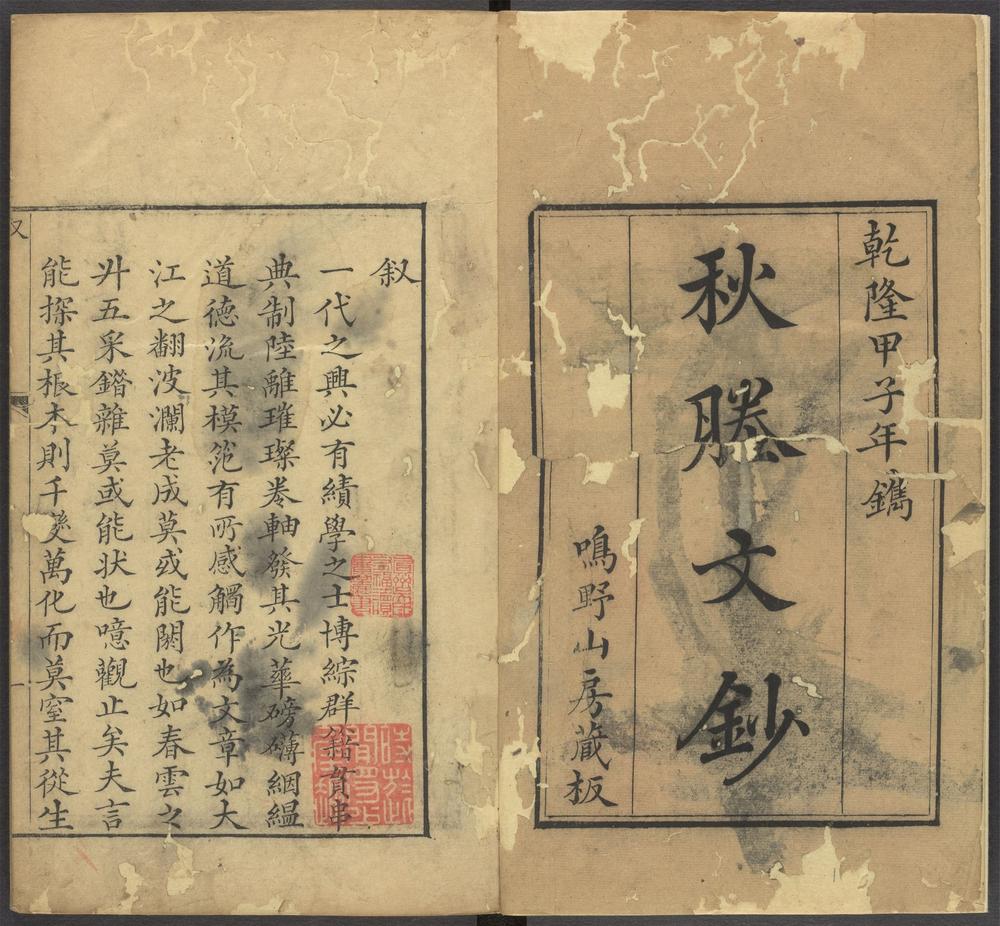 乾隆甲子年鐫
秋塍文鈔
鳴野山房藏板
叙
一代之興必有績學之士博綜群籍貫串
典制陸離璀璨卷軸發其光華磅礴絪緼
道德流其模笵有所感觸作為文章如大
江之翻波瀾老成莫或能閼也如春雲之
廾五采錯雜莫或能状也噫觀止矣夫言
能探其根本則千变萬化而莫窒其從生